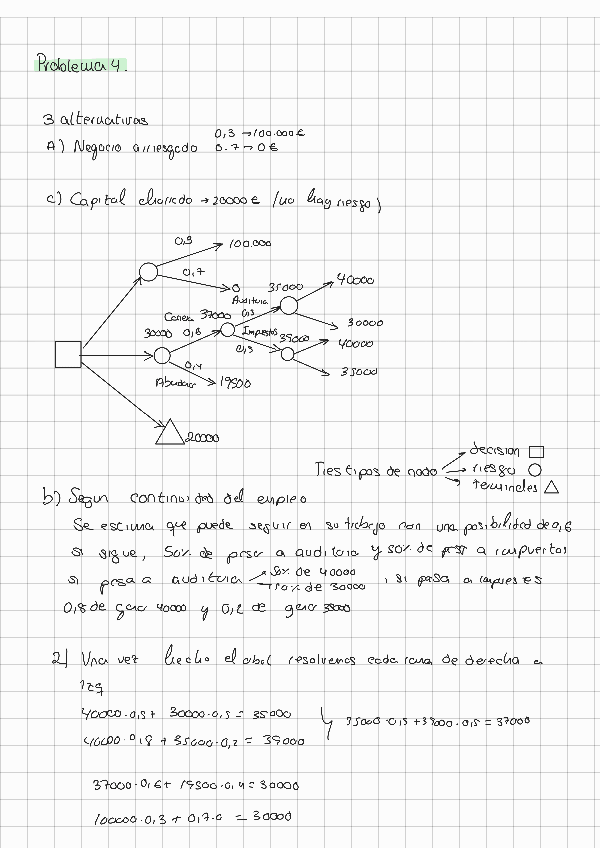 Problema 4.
3 alternativas
A) Negocio arriesgado 0,3 → 100.000 €
0.7 → 0 €
c) Capital ahorrado → 20000 € (no hay riesgo)
0,3 100.000
0,7 0
Auditoria 35000 40000
Conex 37000 0,5 30000
30000 0,6 Impuestos 39000 40000
0,5 35000
0,4
Abandonar 19500
20000
Tres tipos de nodo decision
riesgo
terminales
b) Segun continuidad del empleo
Se estima que puede seguir en su trabajo con una posibilidad de 0,6
si sigue, 50% de pasar a auditoria y 50% de pasar a impuestos
si pasa a auditoria 50% de 40000
50% de 30000 , si pasa a impues es
0,8 de ganar 40000 y 0,2 de ganar 35000
2) Una vez hecho el arbol resolvemos cada rama de derecha a
izq
40000 · 0,5 + 30000 · 0,5 = 35000
40000 · 0,8 + 35000 · 0,2 = 39000
35000 · 0,5 + 39000 · 0,5 = 37000
37000 · 0,6 + 19500 · 0,4 = 30000
100000 · 0,3 + 0,7 · 0 = 30000